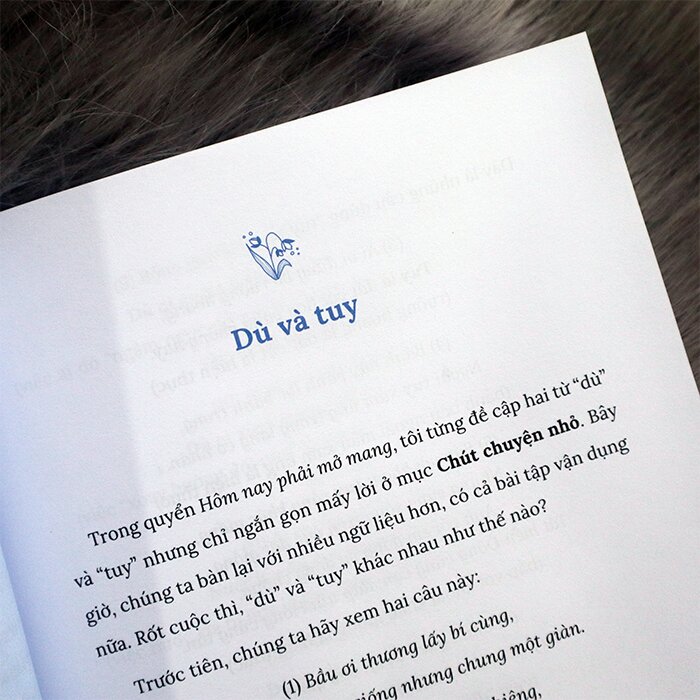 Dù và tuy
Trong quyển Hôm nay phải mở mang, tôi từng đề cập hai từ “dù”
và “tuy” nhưng chỉ ngắn gọn mấy lời ở mục Chút chuyện nhỏ. Bây
giờ, chúng ta bàn lại với nhiều ngữ liệu hơn, có cả bài tập vận dụng
nữa. Rốt cuộc thì, “dù” và “tuy” khác nhau như thế nào?
Trước tiên, chúng ta hãy xem hai câu này:
(1) Bầu ơi thương lấy bí cùng,
giống nhưng chung một giàn.